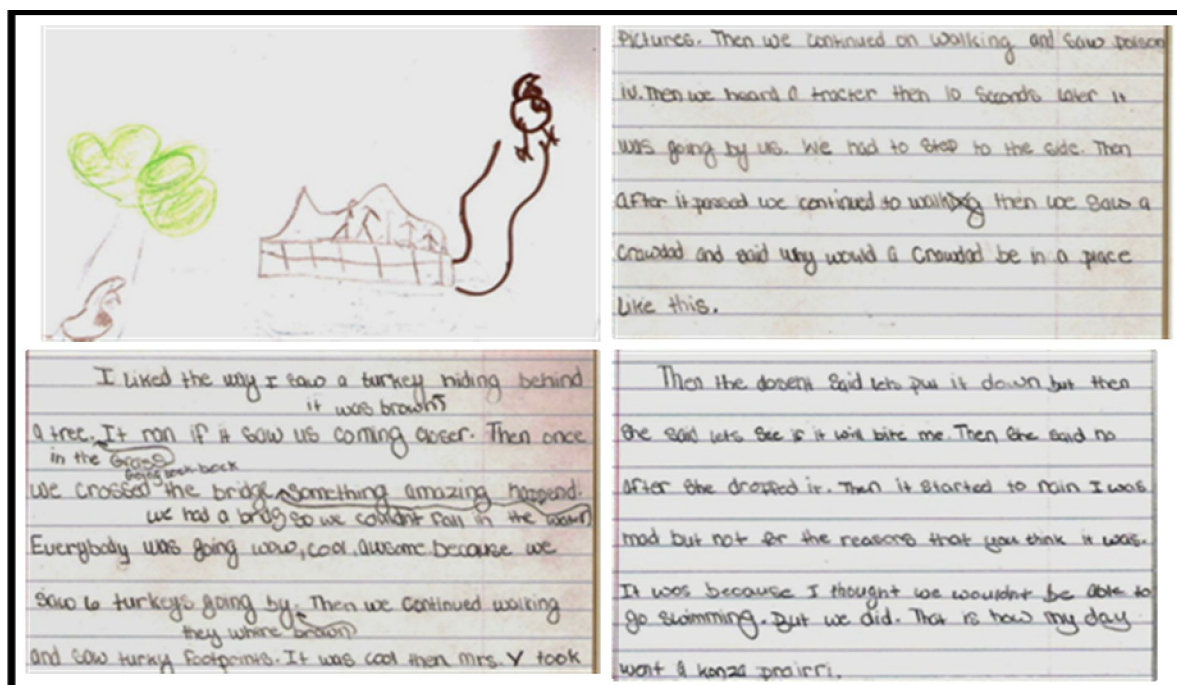 I liked the way I saw a turkey hiding behind
it was brown
a tree. It ran if it saw us coming closer. Then once
in the Grass
Going back-back
we crossed the bridge something amazing happend.
we had a bridg so we couldnt fall in the watr
Everybody was going wow, cool, awsome because we
saw 6 turkeys going by. Then we continued walking
they where brown
and saw turky footprints. It was cool then mrs. Y took
Pictures. Then we continued on walking and saw poison
iv. Then we heard a tracter then 10 seconds later it
was going by us. We had to step to the side. Then
after it passed we continued to walking then we saw a
crawdad and said why would a crawdad be in a place
like this.
Then the dosent said lets put it down but then
she said lets see if it will bite me. Then she said no
after she dropped it. Then it started to rain I was
mad but not for the reasons that you think it was.
It was because I thought we wouldnt be able to
go swimming. But we did. That is how my day
went a konza prairri.